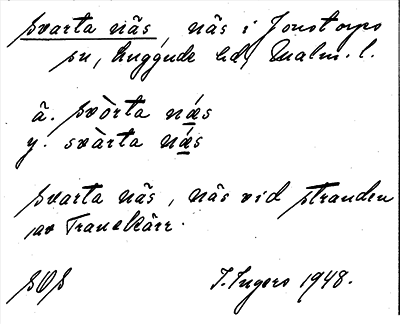 Svarta näs, näs i Jonstorps
sn, Luggude hd, Malm. l.
ä. svòrta næ̀s
y. svàrta næ̀s
Svarta näs, näs vid stranden
av Tranekärr.
SOS J. Ingers 1948.